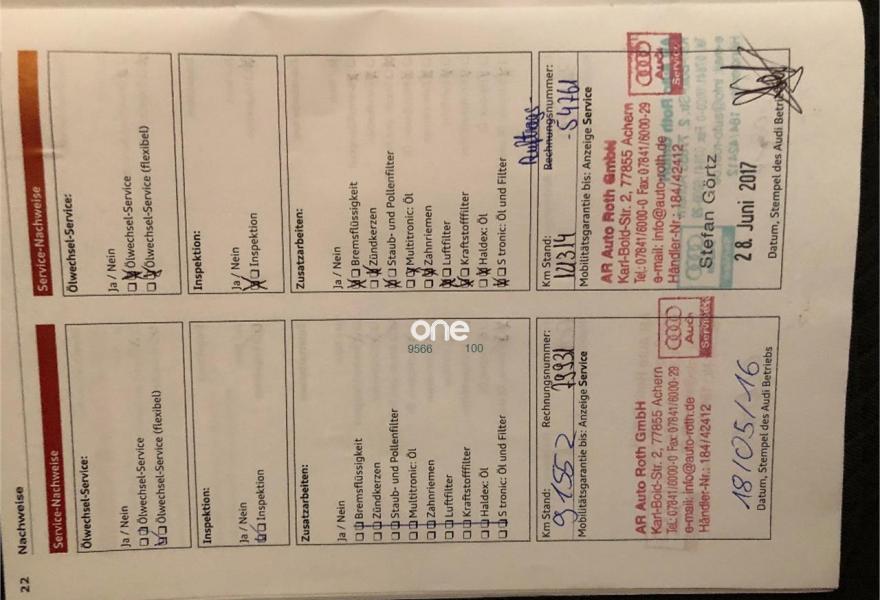 22
Nachweise
Service-Nachweise
Ölwechsel-Service:
Ja / Nein
Ölwechsel-Service
Ölwechsel-Service (flexibel)
Inspektion:
Ja / Nein
Inspektion
Zusatzarbeiten:
Ja / Nein
Bremsflüssigkeit
Zündkerzen
Staub- und Pollenfilter
Multitronic: Öl
Zahnriemen
Luftfilter
Kraftstofffilter
Haldex: Öl
S tronic: Öl und Filter
Km Stand: Rechnungsnummer:
91552 79931
Mobilitätsgarantie bis: Anzeige Service
AR Auto Roth GmbH
Karl-Bold-Str. 2, 77855 Achern
Tel.: 07841/6000-0 Fax: 07841/6000-29
e-mail: info@auto-roth.de
Händler-Nr.: 184/42412
Audi
Service
18/05/16
Datum, Stempel des Audi Betriebs
Service-Nachweise
Ölwechsel-Service:
Ja / Nein
Ölwechsel-Service
Ölwechsel-Service (flexibel)
Inspektion:
Ja / Nein
Inspektion
Zusatzarbeiten:
Ja / Nein
Bremsflüssigkeit
Zündkerzen
Staub- und Pollenfilter
Multitronic: Öl
Zahnriemen
Luftfilter
Kraftstofffilter
Haldex: Öl
S tronic: Öl und Filter
Auftrags-
Km Stand: Rechnungsnummer:
121314 -54761
Mobilitätsgarantie bis: Anzeige Service
AR Auto Roth GmbH
Karl-Bold-Str. 2, 77855 Achern
Tel.: 07841/6000-0 Fax: 07841/6000-29
e-mail: info@auto-roth.de
Händler-Nr.: 184/42412
Audi
Service
Stefan Görtz
28. Juni 2017
Datum, Stempel des Audi Betriebs
one
9566 100